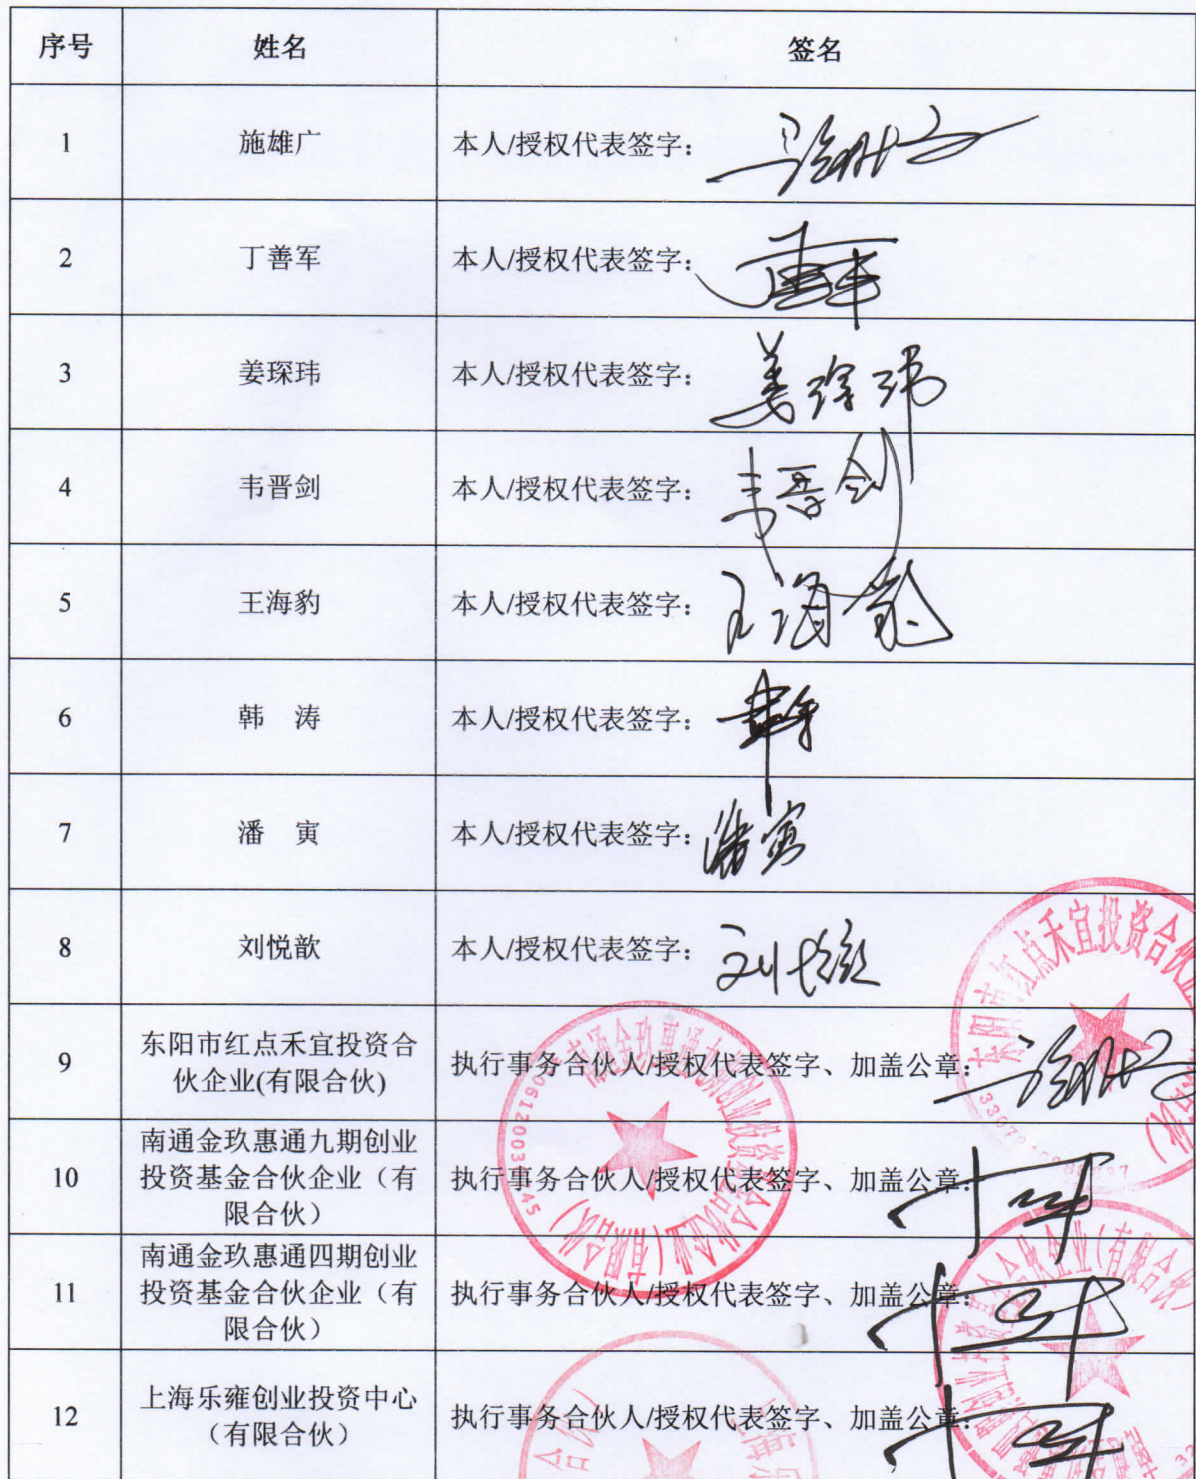 序号 姓名 签名
1 施雄广 本人/授权代表签字：
2 丁善军 本人/授权代表签字：
3 姜琛玮 本人/授权代表签字： 姜琛玮
4 韦晋剑 本人/授权代表签字： 韦晋剑
5 王海豹 本人/授权代表签字： 王海豹
6 韩 涛 本人/授权代表签字：
7 潘 寅 本人/授权代表签字： 潘寅
8 刘悦歆 本人/授权代表签字： 刘悦歆
9 东阳市红点禾宜投资合
伙企业(有限合伙) 执行事务合伙人/授权代表签字、加盖公章：
10 南通金玖惠通九期创业
投资基金合伙企业（有
限合伙） 执行事务合伙人/授权代表签字、加盖公章：
11 南通金玖惠通四期创业
投资基金合伙企业（有
限合伙） 执行事务合伙人/授权代表签字、加盖公章：
12 上海乐雍创业投资中心
（有限合伙） 执行事务合伙人/授权代表签字、加盖公章：